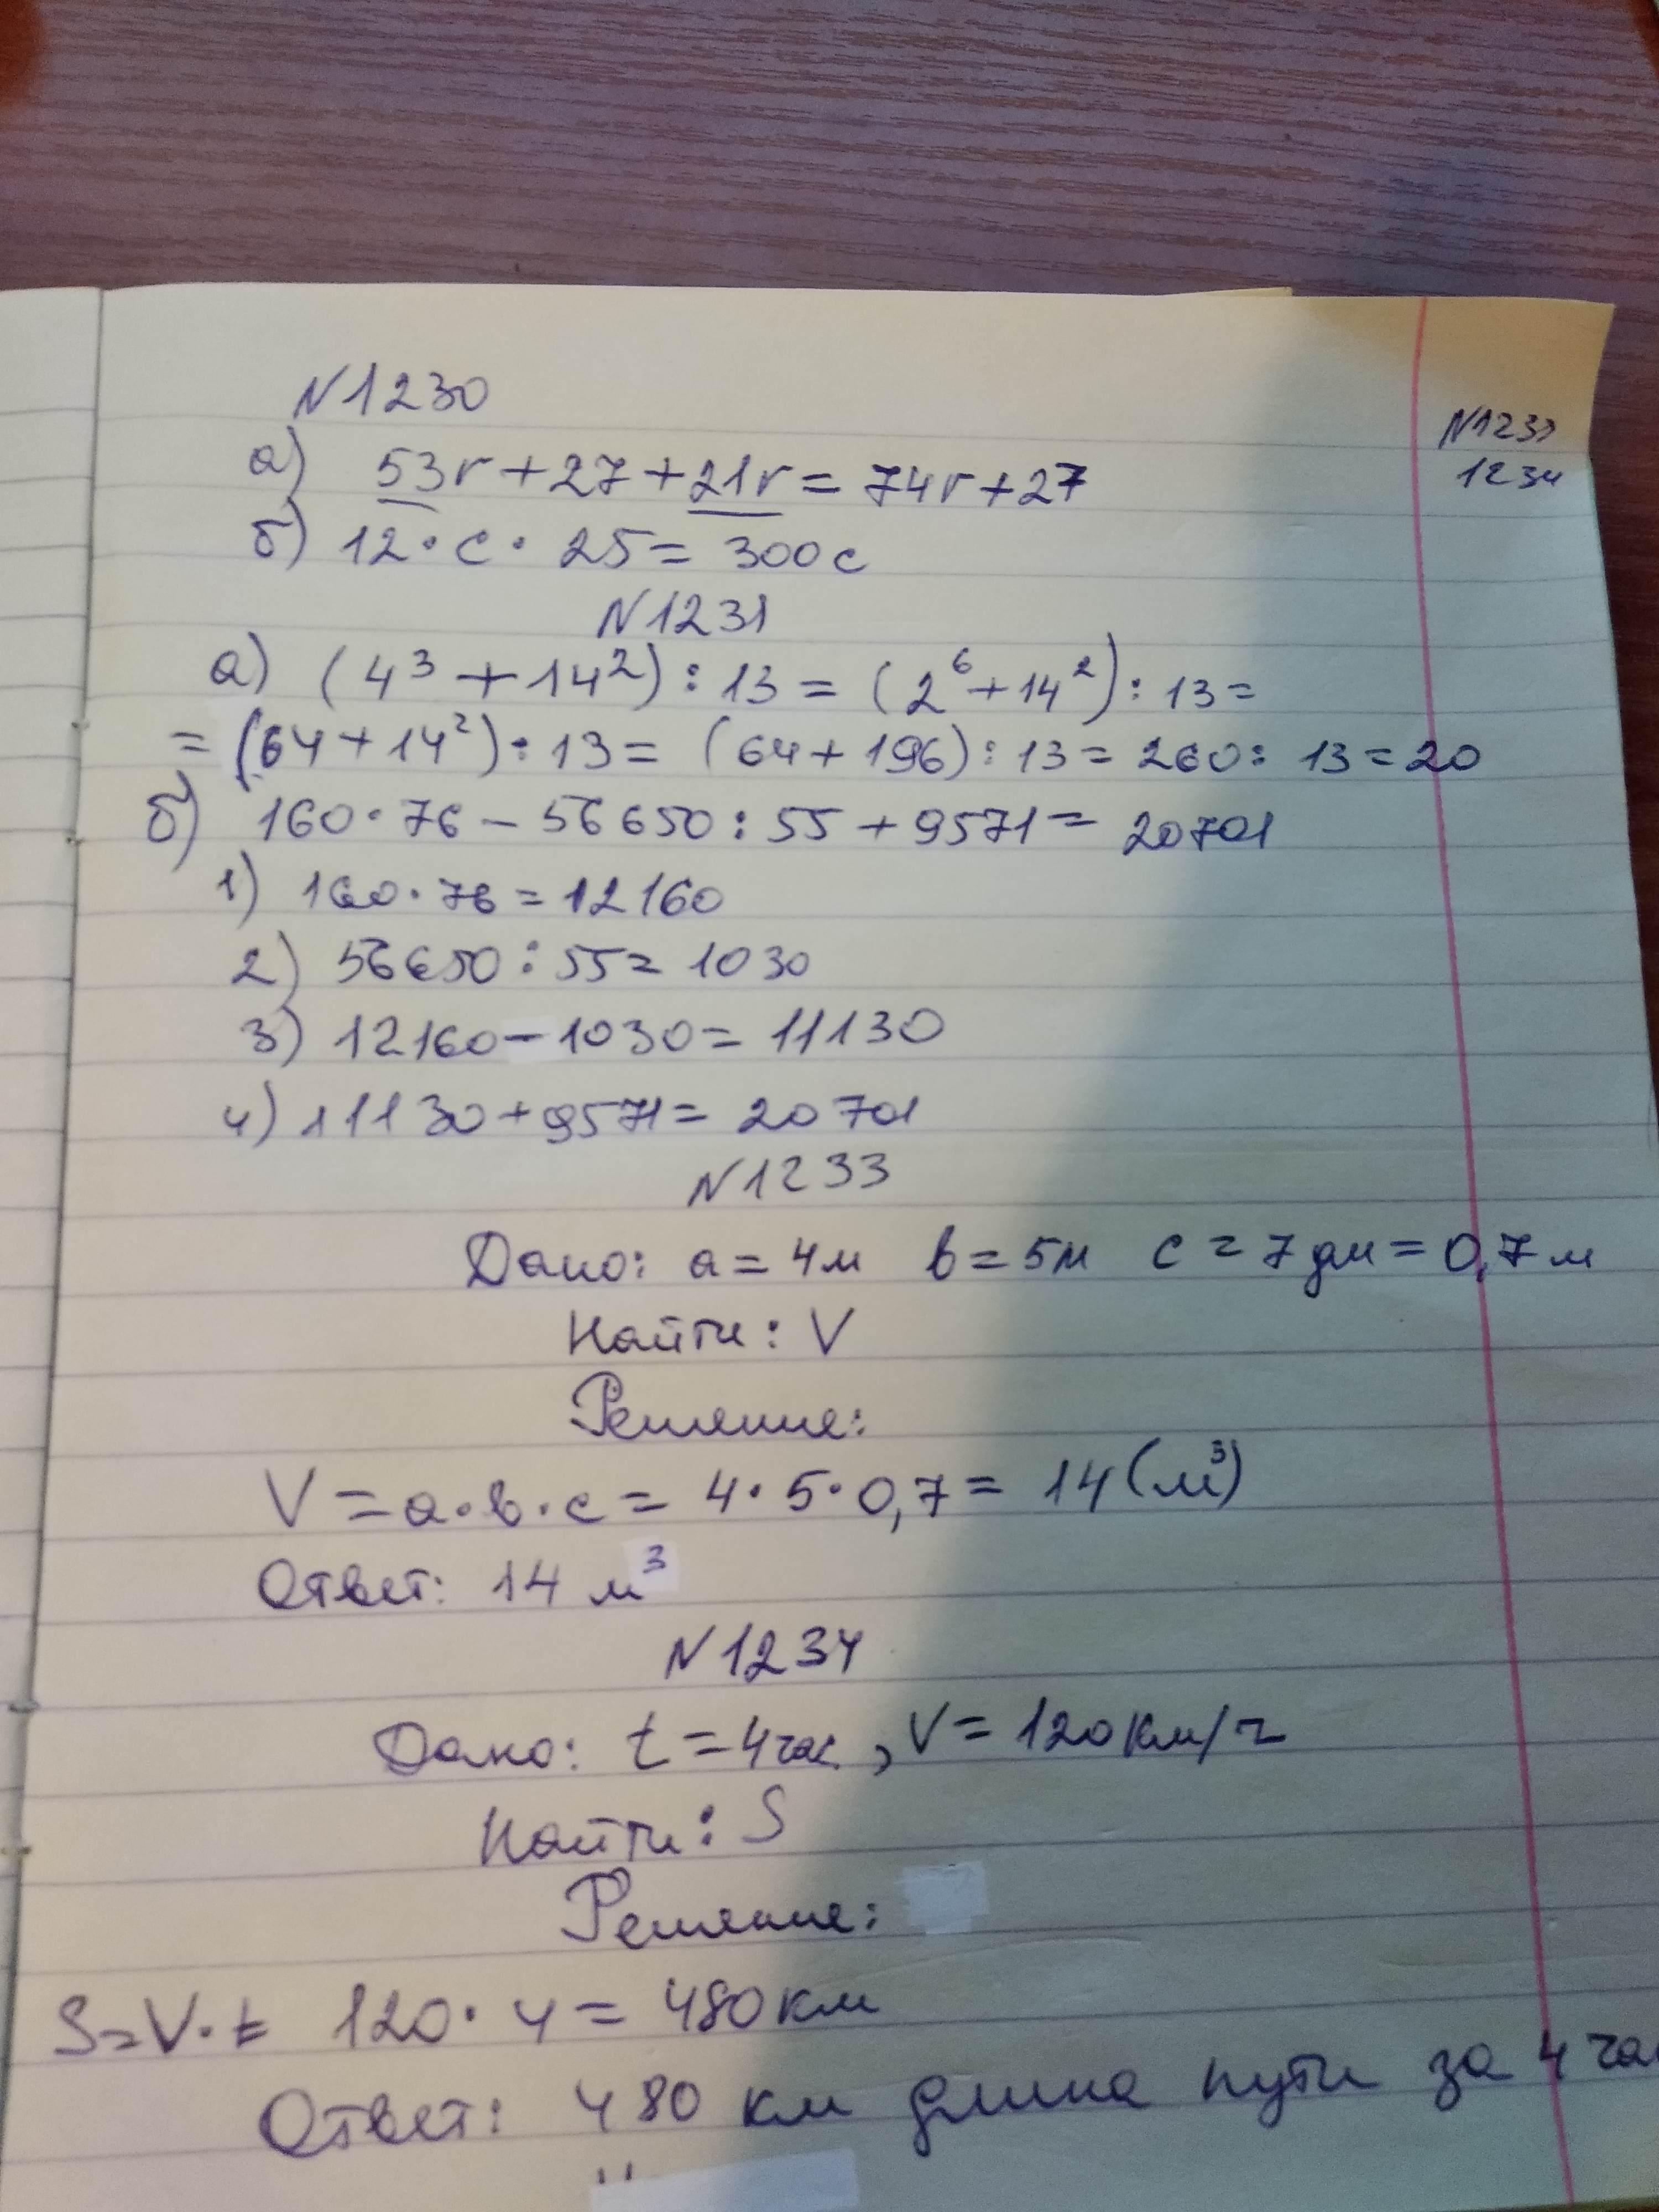 N1230
N1233
1234
а) 53r + 27 + 21r = 74r + 27
б) 12 · c · 25 = 300c
N1231
а) (4³ + 14²) : 13 = (2⁶ + 14²) : 13 =
= (64 + 14²) : 13 = (64 + 196) : 13 = 260 : 13 = 20
б) 160 · 76 – 56650 : 55 + 9571 = 20701
1) 160 · 76 = 12160
2) 56650 : 55 = 1030
3) 12160 – 1030 = 11130
4) 11130 + 9571 = 20701
N1233
Дано: a = 4м b = 5м c = 7дм = 0,7м
Найти: V
Решение:
V = a · b · c = 4 · 5 · 0,7 = 14 (м³)
Ответ: 14 м³
N1234
Дано: t = 4час, V = 120км/ч
Найти: S
Решение:
S = V · t = 120 · 4 = 480км
Ответ: 480 км длина пути за 4 час